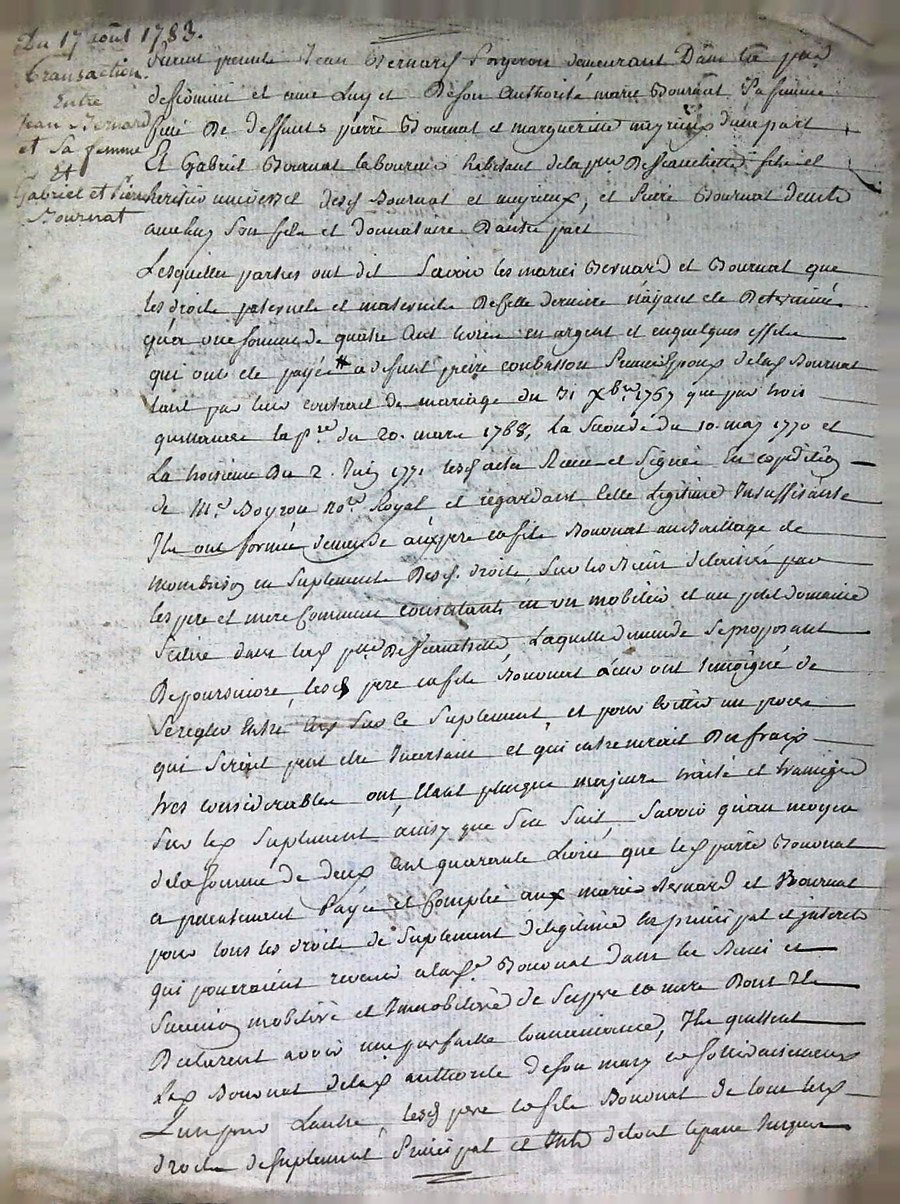 Du 17 août 1783.
transaction.
Entre
Jean Bernard
et sa femme
Et
Gabriel et Pierre
Bournat
furent presents Jean Bernard demeurant Dans la
et avec Luy et De son Authorité marie Bournat Sa femme
fille De deffunts pierre Bournat et margueritte meyrieux d'une part
Et Gabriel Bournat laboureur habitant de la psse De fils et
heritier universel desd Bournat et meyrieux, et Pierre Bournat
avec luy Son fils et donnataire Dautre part
Lesquelles parties ont dit Savoir les mariés Bernard et Bournat que
les droits paternels et maternels De cette derniere n'ayant eté Determinés
qu'a une somme de quatre cent livres en argent et en quelques effets
qui ont eté payés a defunt pierre Epoux de lad Bournat
tant par leur contrat de mariage du 31 Xbre 1767 que par trois
quittances la pre du 20. mars 1768, la Seconde du 10. may 1770 et
La troisieme Du 2. 1771 lesd actes Reçus et Signés En expedition
de Me Boyron nore Royal et regardant cette Legitime Insuffisante
Ils ont formé demande aux pere et fils Bournat au Bailliage de
montbrison en Suplement Desd. droits, Sur les Biens delaissés par
les pere et mere Communs consistants en un mobilier et un petit domaine
Scitué dans lad psse De Laquelle demande Se proposant
De poursuivre, lesd pere et fils Bournat leur ont temoigné de
Se regler Entre eux Sur le Suplement, et pour eviter un proces
qui Seroit peut etre Incertain et qui entraineroit Des frais
tres considerables ont, Etant majeurs traité et transigé
Sur led Suplement ainsy que Sen Suit Savoir qu'au moyen
de la somme de deux cent quarente Livres que led pierre Bournat
a presentement Payée et Comptée aux mariés Bernard et Bournat
pour tous les droits de Suplement de legitime en principal et interets
qui pourraient revenir a lad Bournat dans les Biens et
Succession mobiliere et Immobiliere de Ses pere et mere Dont Ils
Declarent avoir une parfaite connaissance, Ils quittent
Lad Bournat de lad authorité de son mary et solidairement
L'un pour Lautre, lesd pere et fils Bournat de tous leurs
droits de Suplement Principal et de tout le passé Jusques